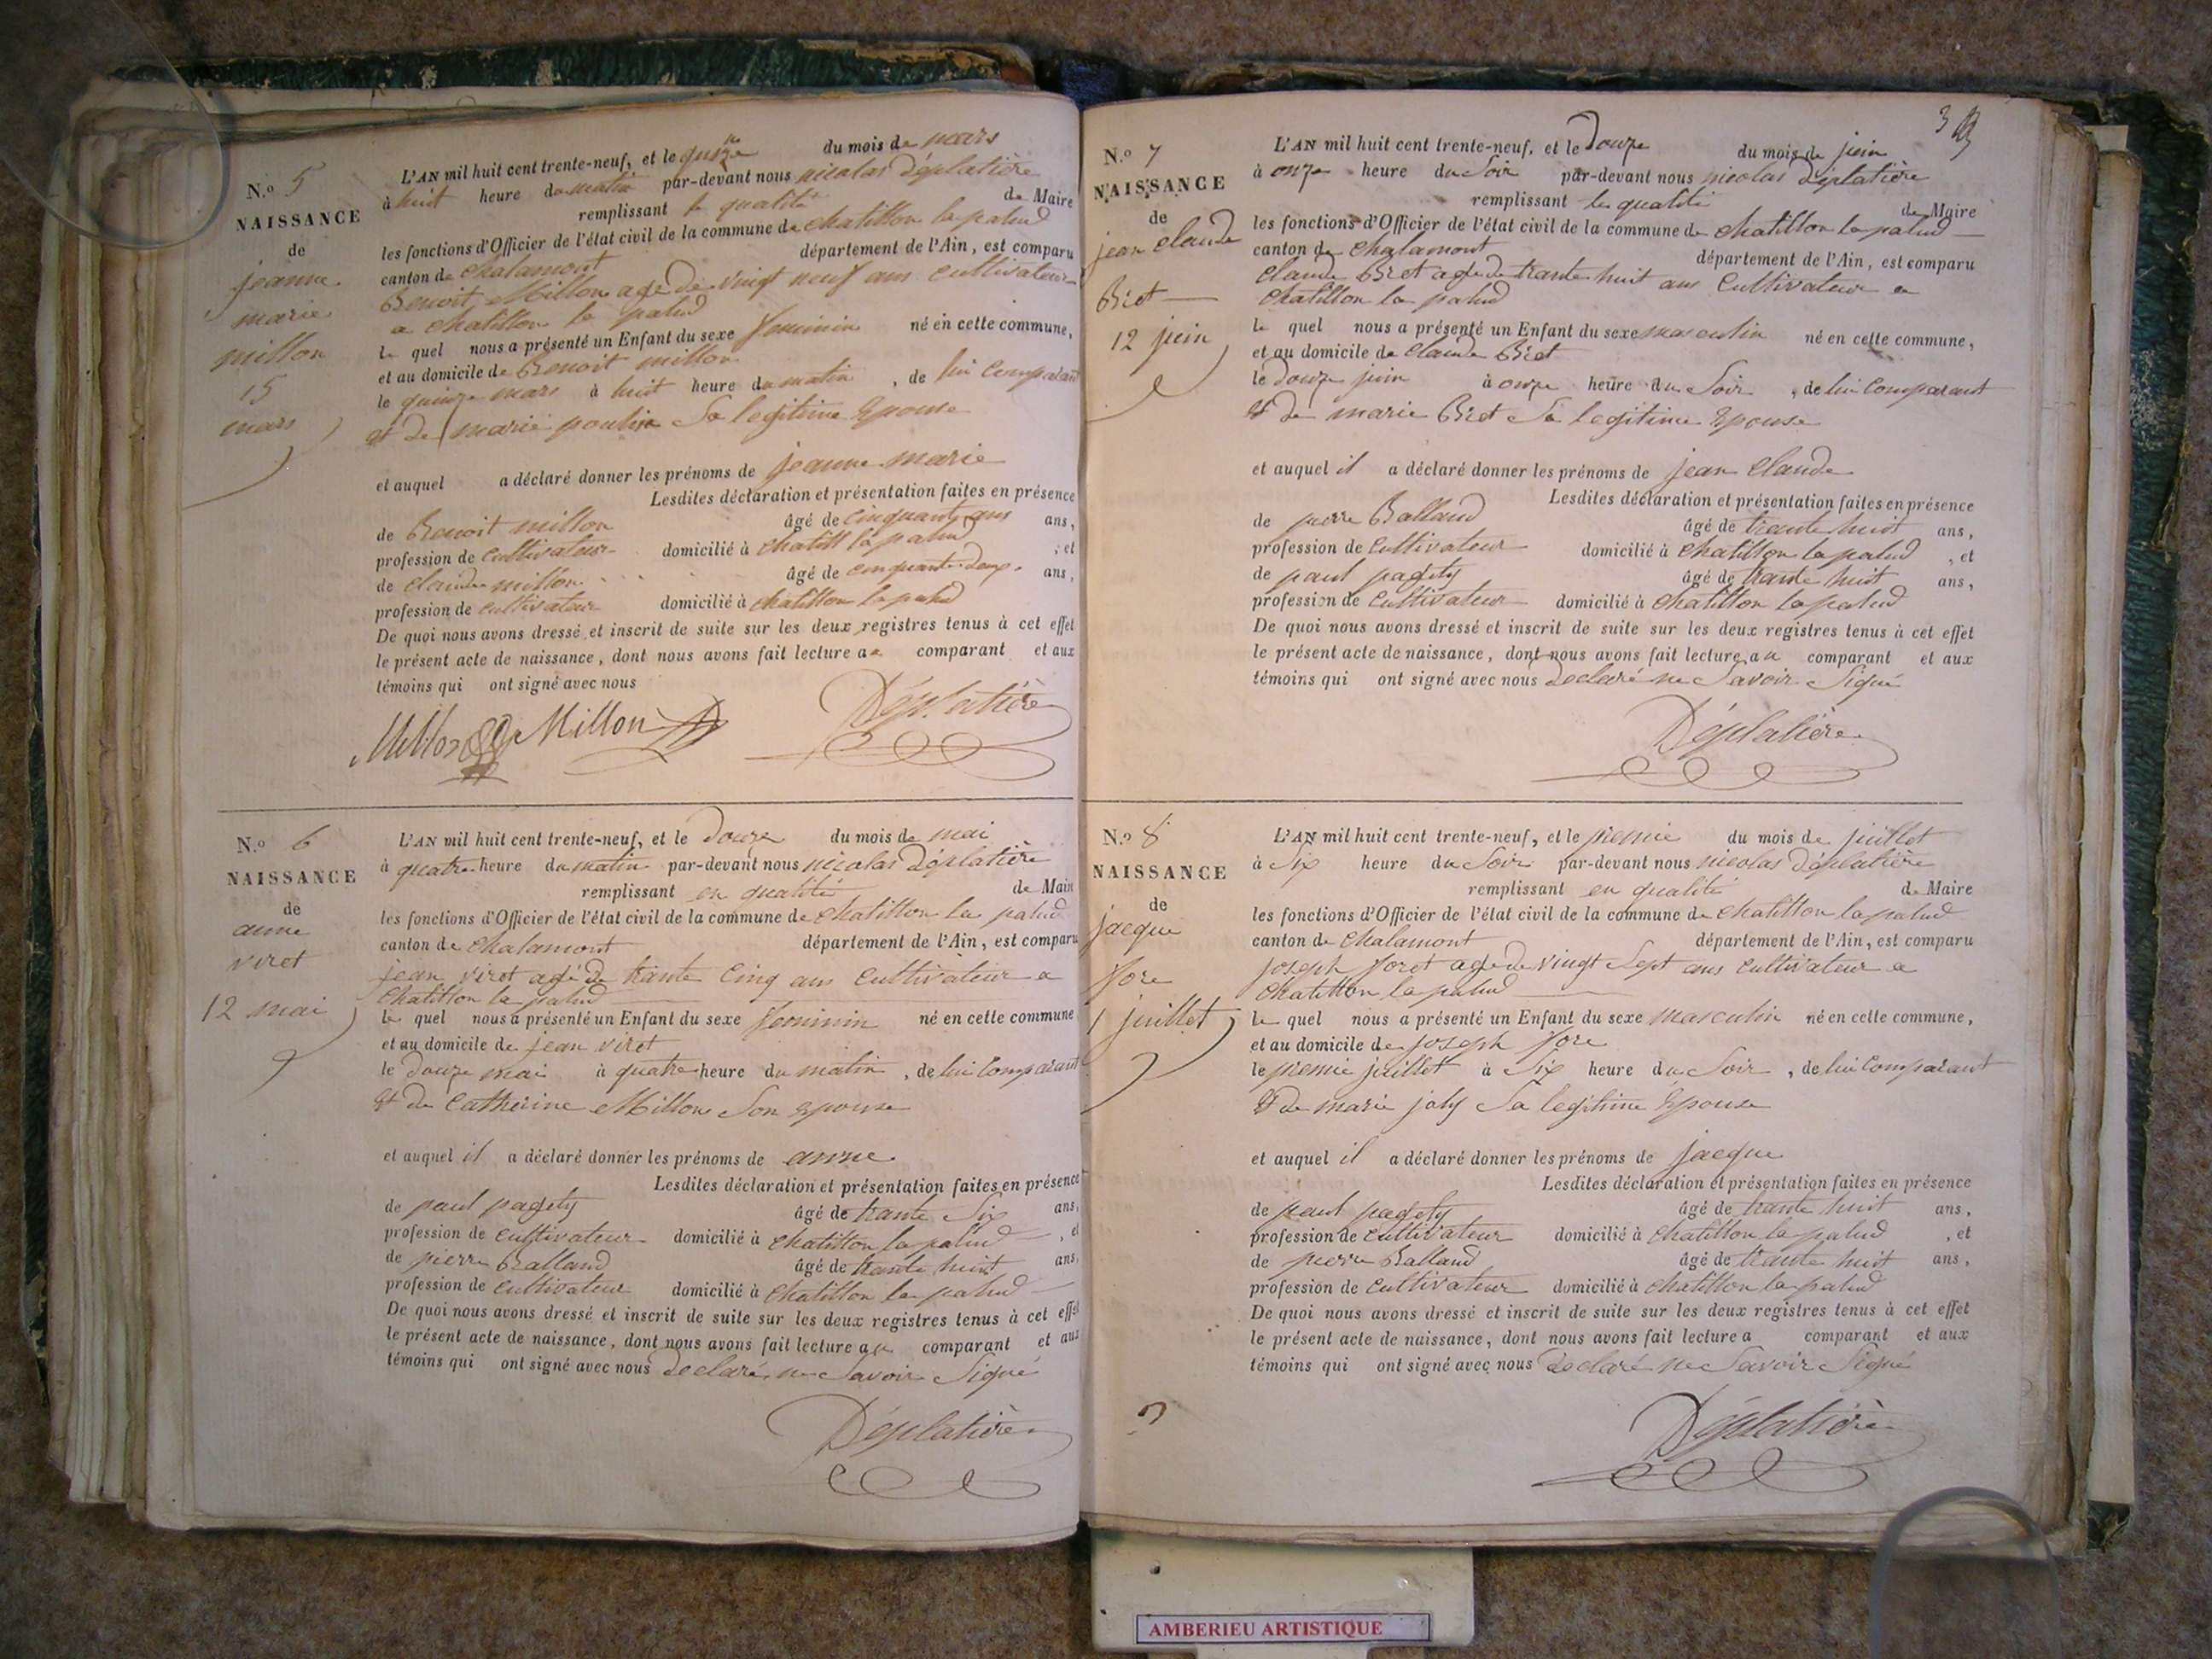 N.o 5
NAISSANCE
de
jeanne
marie
millon
15
mars
L'AN mil huit cent trente-neuf, et le quinze du mois de mars
à huit heure du matin par-devant nous nicolas Déplatière
remplissant la qualité de Maire
les fonctions d'Officier de l'état civil de la commune de chatillon la palud
canton de chalamont département de l'Ain, est comparu
Benoit Millon agé de vingt neuf ans Cultivateur
a chatillon la palud
le quel nous a présenté un Enfant du sexe feminin né en cette commune,
et au domicile de Benoit millon
le quinze mars à huit heure du matin, de lui Comparant
et de marie poulin Sa legitime Epouse
et auquel a déclaré donner les prénoms de jeanne marie
Lesdites déclaration et présentation faites en présence
de Benoit millon âgé de cinquante ans ans,
profession de cultivateur domicilié à chatill la palud ; et
de claude millon âgé de cinquante deux ans,
profession de cultivateur domicilié à chatillon la palud
De quoi nous avons dressé et inscrit de suite sur les deux registres tenus à cet effet
le présent acte de naissance, dont nous avons fait lecture au comparant et aux
témoins qui ont signé avec nous
Millon Millon Déplatière
N.o 6
NAISSANCE
de
anne
viret
12 mai
L'AN mil huit cent trente-neuf, et le Douze du mois de mai
à quatre heure du matin par-devant nous nicolas Déplatière
remplissant en qualité de Mair
les fonctions d'Officier de l'état civil de la commune de chatillon la palud
canton de chalamont département de l'Ain, est comparu
jean viret agé de trante Cinq ans Cultivateur a
Chatillon la palud
le quel nous a présenté un Enfant du sexe feominin né en cette commune
et au domicile de jean viret
le Douze mai à quatre heure du matin, de lui Comparant
Et de Catherine Millon Son Epouse
et auquel il a déclaré donner les prénoms de anne
Lesdites déclaration et présentation faites en présence
de paul pagety âgé de trante Six ans,
profession de cultivateur domicilié à chatillon la palud, et
de pierre Balland âgé de trante huit ans,
profession de cultivateur domicilié à chatillon la palud
De quoi nous avons dressé et inscrit de suite sur les deux registres tenus à cet effet
le présent acte de naissance, dont nous avons fait lecture au comparant et aux
témoins qui ont signé avec nous Declaré ne Savoir Signé
Déplatière
3
N.o 7
NAISSANCE
de
jean claude
Briet
12 juin
L'AN mil huit cent trente-neuf, et le Douze du mois de juin
à onze heure du Soir par-devant nous nicolas Déplatière
remplissant les qualité de Maire
les fonctions d'Officier de l'état civil de la commune de chatillon la palud
canton de chalamont département de l'Ain, est comparu
Claude Briet age de trante huit ans Cultivateur a
chatillon la palud
le quel nous a présenté un Enfant du sexe masculin né en cette commune,
et au domicile de claude Briet
le Douze juin à onze heure du Soir, de lui Comparant
Et de marie Briet Sa legitime Epouse
et auquel il a déclaré donner les prénoms de jean Claude
Lesdites déclaration et présentation faites en présence
de pierre Balland âgé de trante huit ans,
profession de Cultivateur domicilié à chatillon la palud, et
de paul pagety âgé de trante huit ans,
profession de Cultivateur domicilié à chatillon la palud
De quoi nous avons dressé et inscrit de suite sur les deux registres tenus à cet effet
le présent acte de naissance, dont nous avons fait lecture au comparant et aux
témoins qui ont signé avec nous Declaré ne Savoir Signé
Déplatière
N.o 8
NAISSANCE
de
jacque
fore
1 juillet
L'AN mil huit cent trente-neuf, et le premie du mois de juillet
à Six heure du Soir par-devant nous nicolas Déplatière
remplissant en qualité de Maire
les fonctions d'Officier de l'état civil de la commune de chatillon la palud
canton de chalamont département de l'Ain, est comparu
joseph foret age de vingt Sept ans cultivateur a
chatillon la palud
le quel nous a présenté un Enfant du sexe masculin né en cette commune,
et au domicile de joseph fore
le premie juillet à Six heure du Soir, de lui Comparant
Et de marie joly Sa legitime Epouse
et auquel il a déclaré donner les prénoms de jacque
Lesdites déclaration et présentation faites en présence
de paul pagety âgé de trante huit ans,
profession de cultivateur domicilié à chatillon la palud, et
de pierre Balland âgé de trante huit ans,
profession de cultivateur domicilié à chatillon la palud
De quoi nous avons dressé et inscrit de suite sur les deux registres tenus à cet effet
le présent acte de naissance, dont nous avons fait lecture a comparant et aux
témoins qui ont signé avec nous Declaré ne Savoir Signé
Déplatière
AMBERIEU ARTISTIQUE